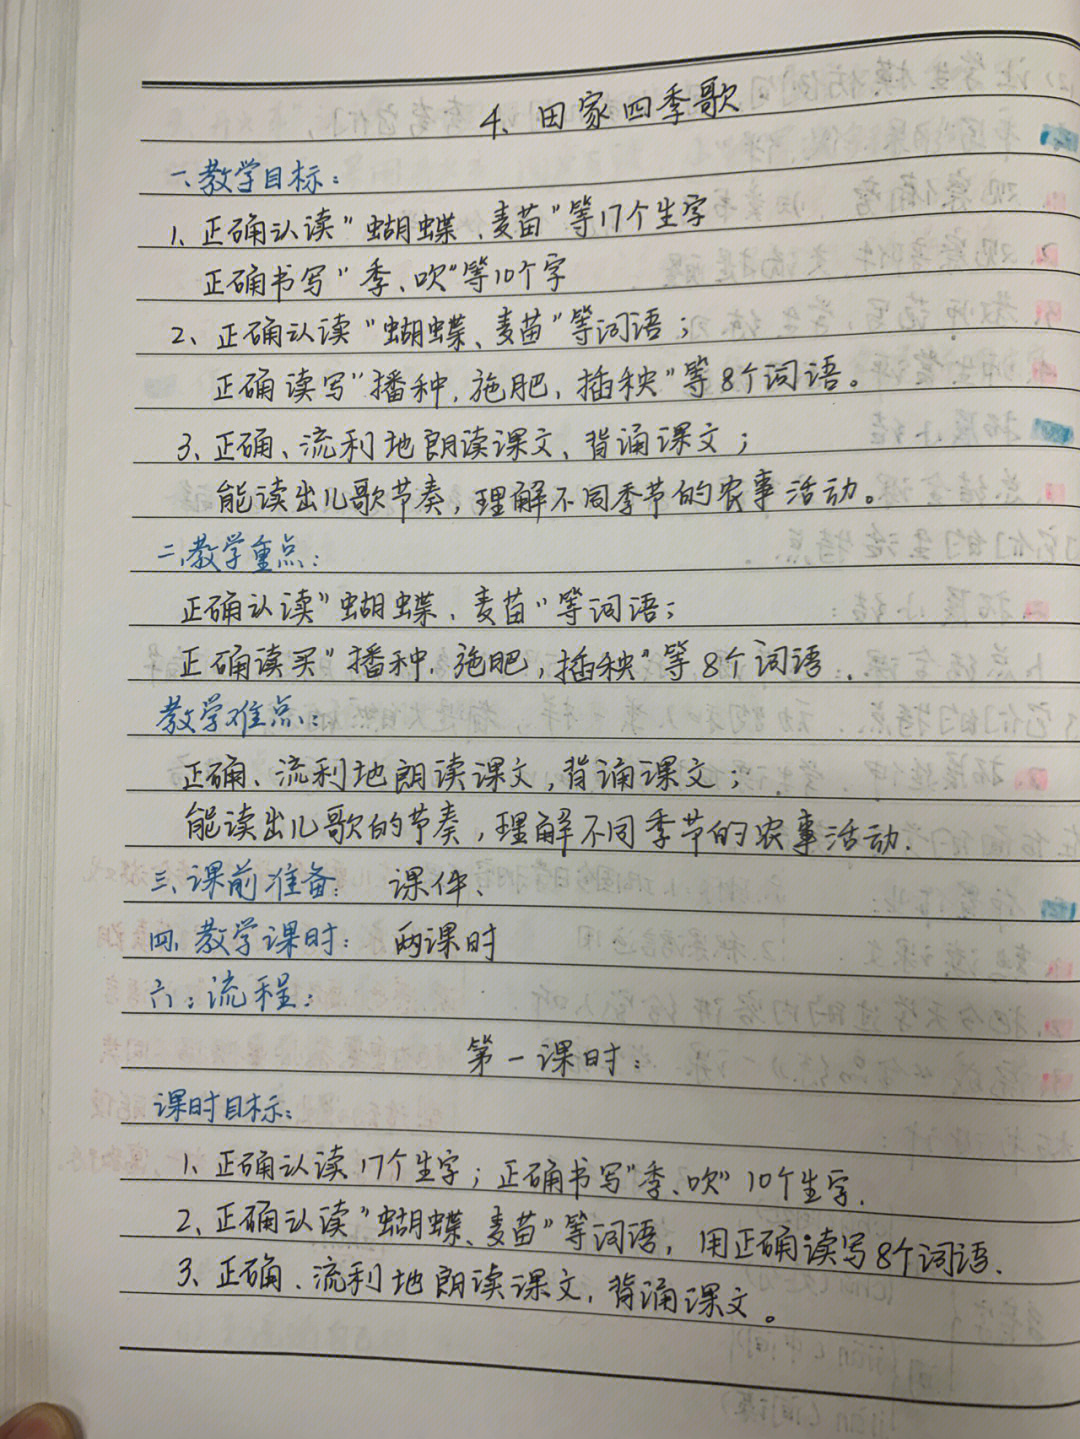 4、田家四季歌
一、教学目标：
1、正确认读"蝴蝶、麦苗"等17个生字
正确书写"季、吹"等10个字
2、正确认读"蝴蝶、麦苗"等词语；
正确读写"播种，施肥，插秧"等8个词语。
3、正确、流利地朗读课文、背诵课文；
能读出儿歌节奏，理解不同季节的农事活动。
二、教学重点：
正确认读"蝴蝶、麦苗"等词语；
正确读买"播种，施肥，插秧"等8个词语.
教学难点：
正确、流利地朗读课文，背诵课文；
能读出儿歌的节奏，理解不同季节的农事活动.
三、课前准备： 课件、
四、教学课时： 两课时
六：流程：
第一课时：
课时目标：
1、正确认读17个生字；正确书写"季、吹"10个生字.
2、正确认读"蝴蝶、麦苗"等词语，用正确读写8个词语.
3、正确、流利地朗读课文，背诵课文。